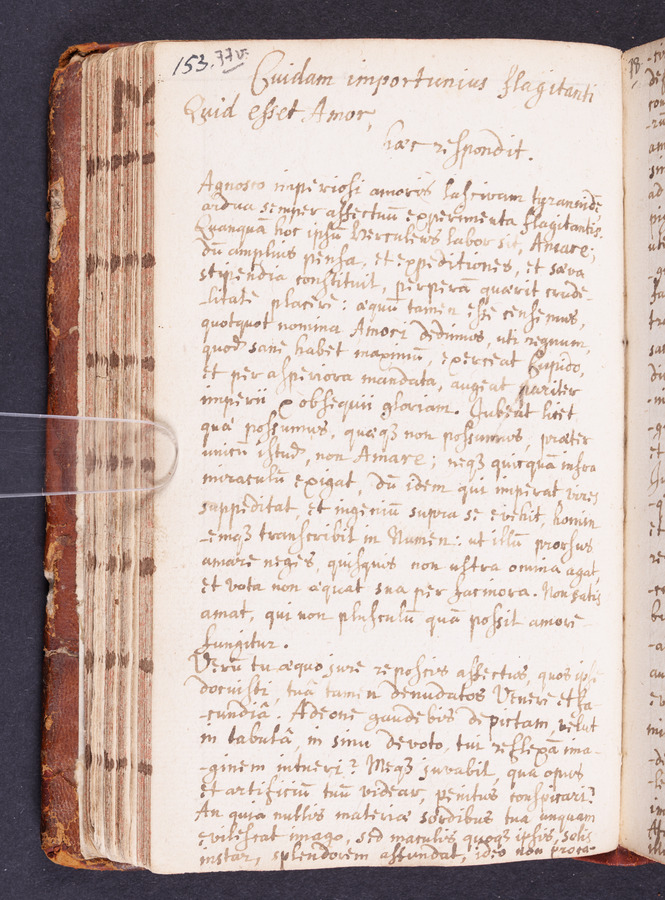 153. 77v.
Cuidam importunius flagitanti
Quid esset Amor,
hæc respondit.
Agnosco imperiosi amoris lascivam tyrannidē,
ardua semper affectuū experimenta flagitantis.
Quanquā hoc ipsū Herculeus labor sit, Amare;
dū amplius pensa, et expeditiones, et sæva
stipendia constituit, perperā quærit crude-
-litate placere: æquū tamen esse censemus,
quotquot nomina Amori dedimus, uti regnum,
quod sane habet maximū, exerceat Cupido,
et per asperiora mandata, augeat pariter
imperii & obsequii gloriam. Jubeat licet
quæ possumus, quæqꝫ non possumus, præter
unicū istud, non Amare; neqꝫ quicquā infra
miraculū exigat, dū idem qui imperat vires
suppeditat, et ingeniū supra se evehit, homin
-emqꝫ transcribit in Numen: ut illū prorsus
amare neges, quisquis non ultra omnia agat,
et vota non æquat sua per facinora. Non satis
amat, qui non plusculū quā possit amore
fungitur.
Verū tu æquo jure reposcis affectus, quos ipse
docuisti, tuâ tamen denudatos Venere et fa-
-cundiâ. Adeone gaudebis depictam velut
in tabulâ, in sinu devoto, tui reflexā ima-
-ginem intueri? Meqꝫ juvabit, quā opus
et artificiū tuū videar, penitus conspicari?
An quia nullis materiæ sordibus tua unquam
evilescat imago, sed maculis quoqꝫ ipsis, solis
instar, splendorem affundat, ideo non proca-